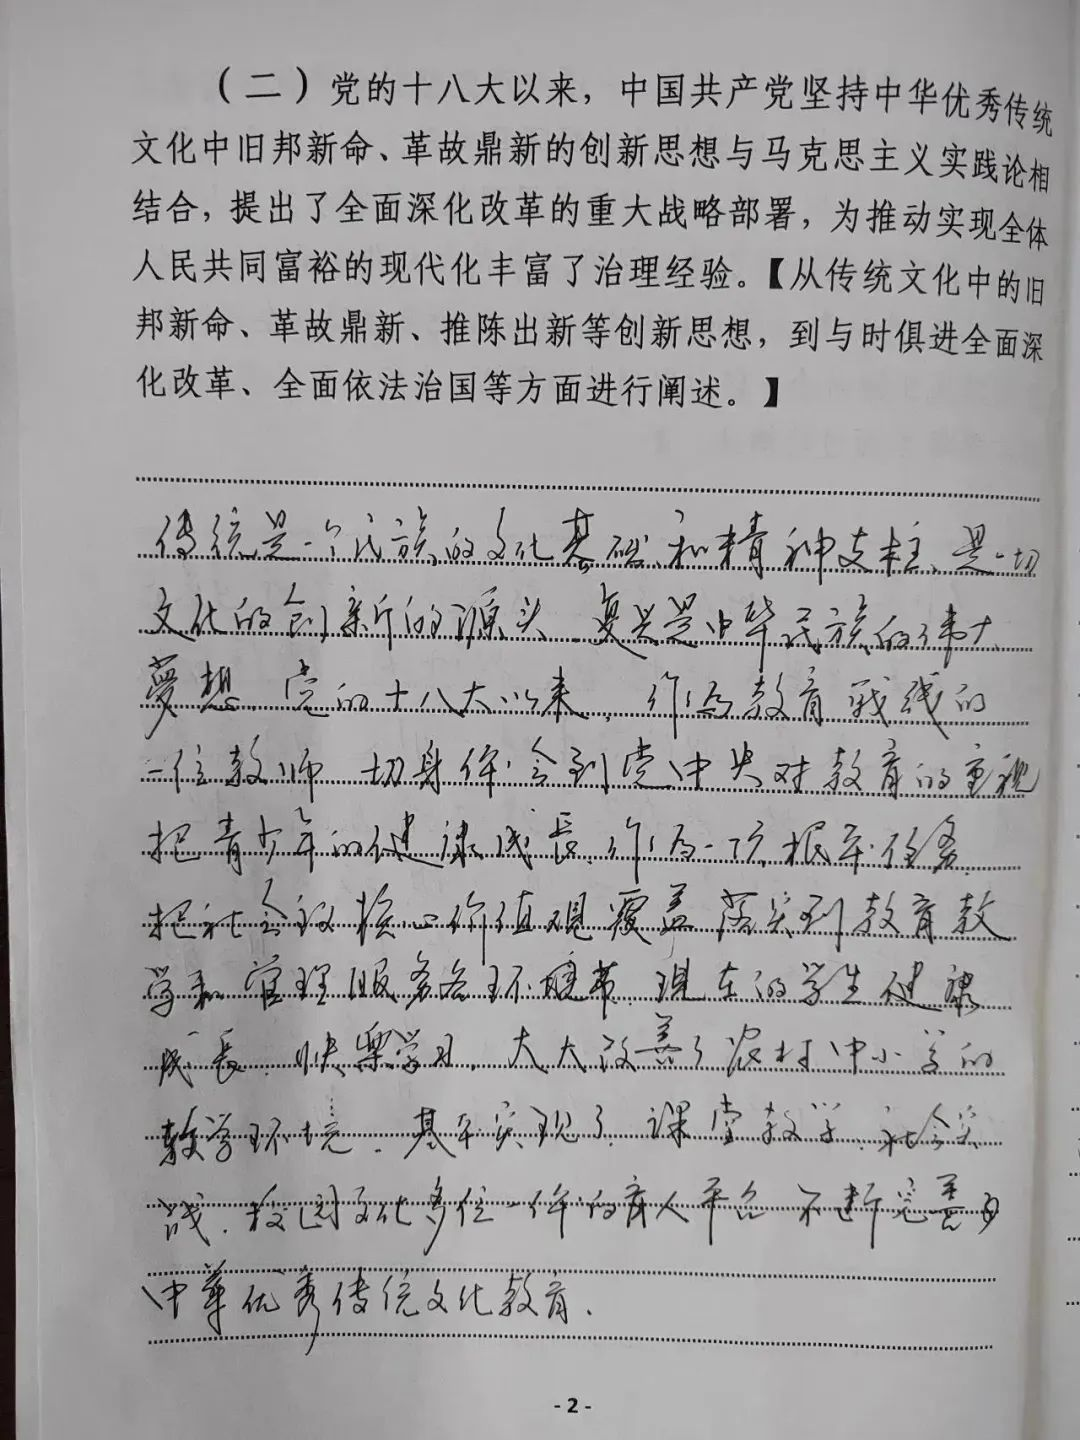 （二）党的十八大以来，中国共产党坚持中华优秀传统
文化中旧邦新命、革故鼎新的创新思想与马克思主义实践论相
结合，提出了全面深化改革的重大战略部署，为推动实现全体
人民共同富裕的现代化丰富了治理经验。【从传统文化中的旧
邦新命、革故鼎新、推陈出新等创新思想，到与时俱进全面深
化改革、全面依法治国等方面进行阐述。】
传统是一个民族的文化基础和精神支柱、是一切
文化的创新的源头、复兴是中华民族的伟大
夢想、党的十八大以来，作为教育战线的
一位教师 切身体会到党中央对教育的重视
把青少年的健康成長、作为一项根本任务、
把社会 核心价值观覆盖落实到教育教
学和管理服务各环境节 现在的学生健康
成長、快樂学习、大大改善了农村中小学的
教学环境、基本实现了、课堂教学、社会实
践、校园文化多位一体的育人平台 不断完善
中華优秀传统文化教育、
- 2 -